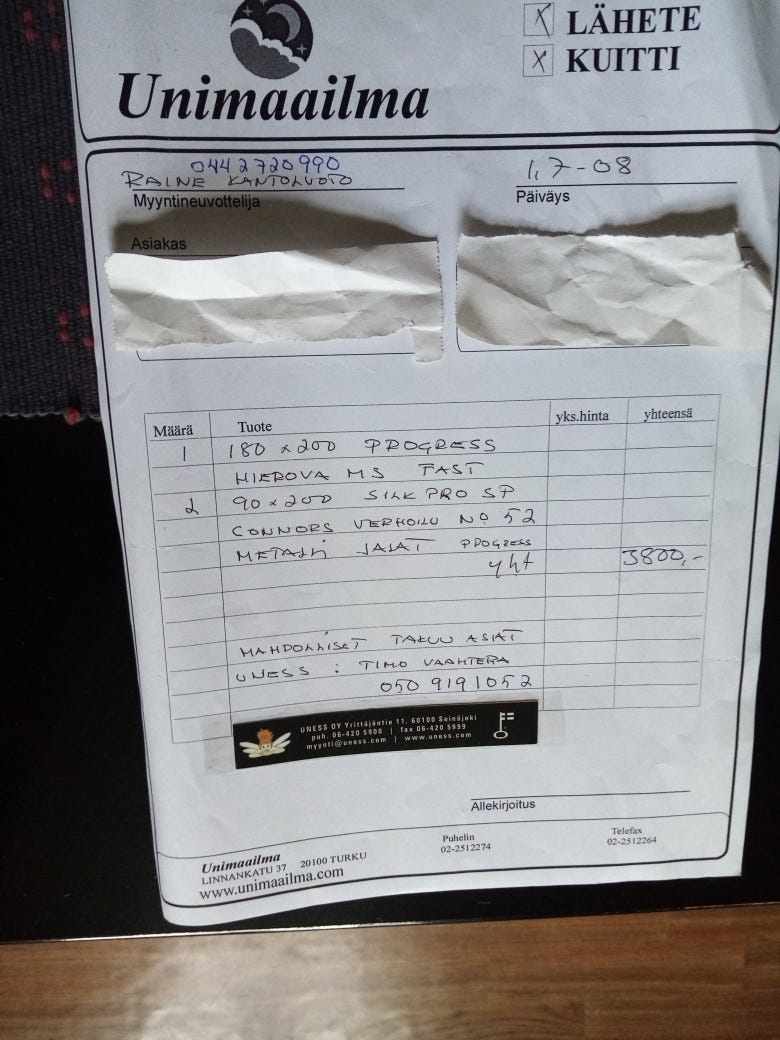 X LÄHETE
X KUITTI
Unimaailma
0442720990
RAINE KANTOLUOTO
Myyntineuvottelija
1,7-08
Päiväys
Asiakas
Määrä Tuote yks.hinta yhteensä
1 180 x 200 PROGRESS
HIEROVA MS FAST
2 90 x 200 SILK PRO SP
CONNORS VERHOILU No 52
METALLI JALAT PROGRESS
yht 3800,-
MAHDOLLISET TAKUU ASIAT
UNESS : TIMO VAAHTERA
050 9191052
UNESS OY Yrittäjäntie 11, 60100 Seinäjoki
puh. 06-420 5900 | fax 06-420 5999
myynti@uness.com | www.uness.com
Allekirjoitus
Unimaailma
LINNANKATU 37 20100 TURKU
www.unimaailma.com
Puhelin
02-2512274
Telefax
02-2512264